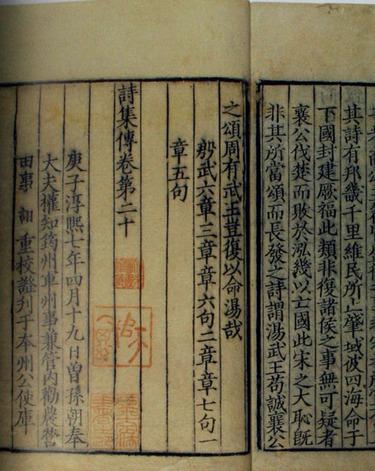 其詩有邦畿千里維民所止肇域彼四海命于
下國封建厥福此類非復諸侯之事無可疑者
襄公伐楚而敗於泓幾以亡國此宋之大恥既
非其所當頌而長發之詩謂湯武王苟誠襄公
之頌周有武王豈復以命湯哉
殷武六章三章章六句二章章七句一
章五句
詩集傳卷第二十
庚子淳熙七年四月十九日曾孫朝奉
大夫權知筠州軍州事兼管内勸農營
田事 詡 重校證刊于本州公使庫